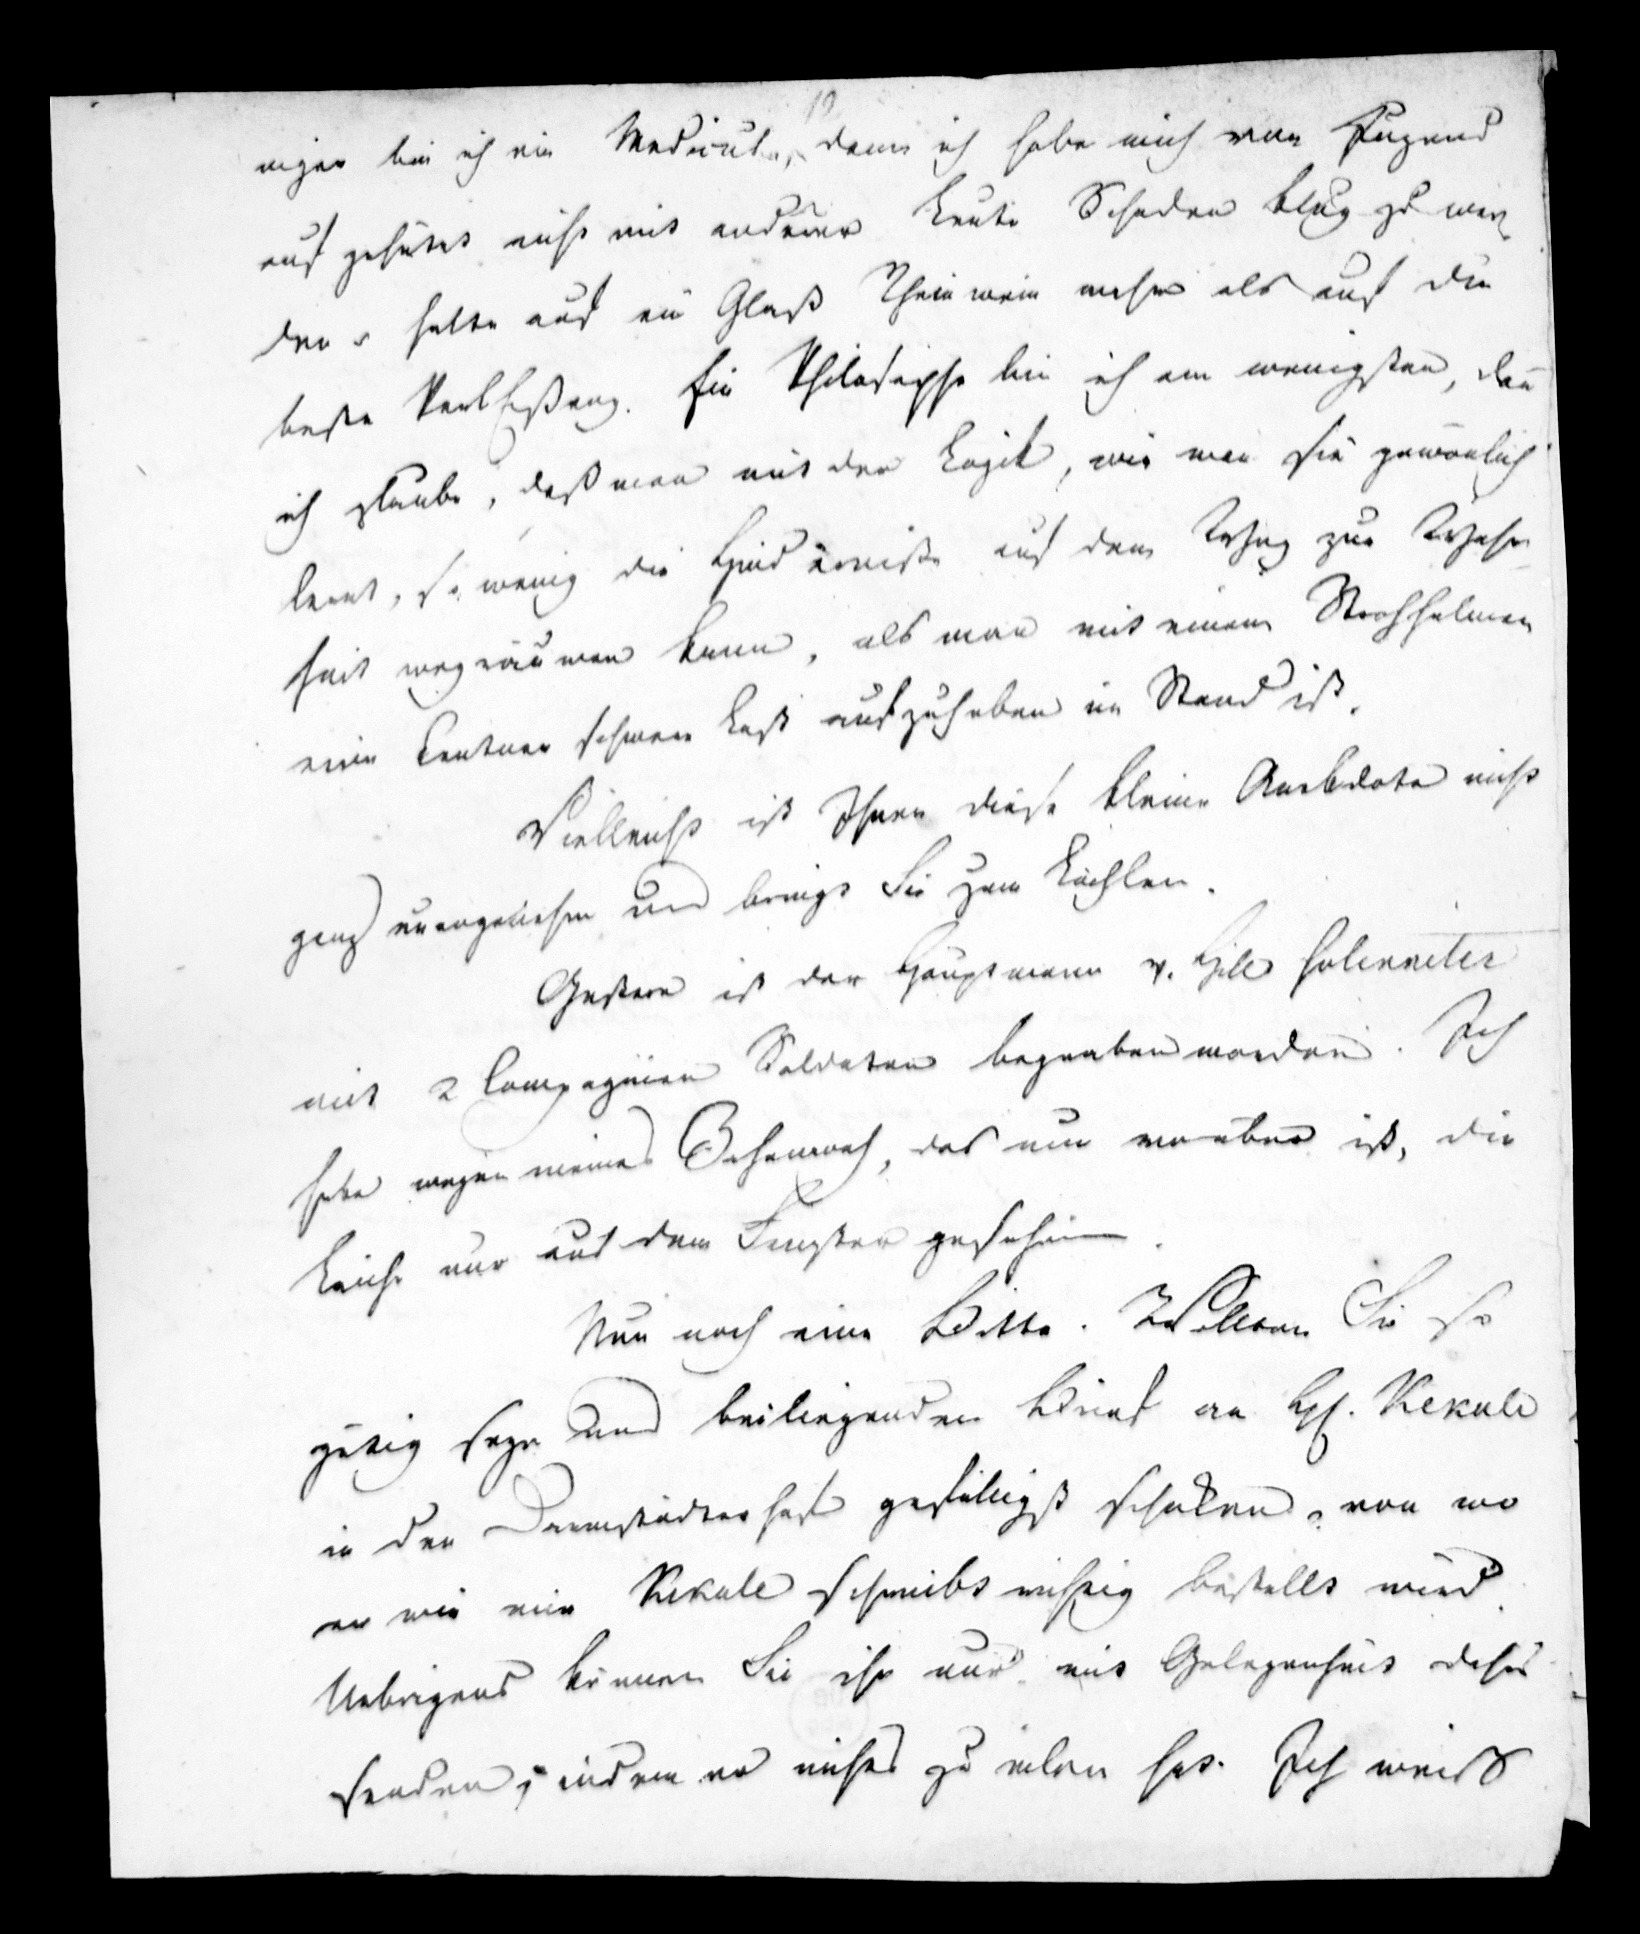 niger bin ich ein Medicus, denn ich habe mich von Jugend
auf gehütet nicht mit anderer Leute Schaden klug zu wer
den u halte auf ein Glaß Rheinwein mehr als auf die
beste Ein Philosoph bin ich am wenigsten, den̄
ich glaube, daß man mit der Logik, wie man sie gewönlich
lernt, so wenig die Hinderniße auf dem Weg zur Wahr
heit wegräumen kann, als man mit einem Strohhalmen
eine Centner schwere Last aufzuheben im Stand ist.
Vielleicht ist Ihnen diese kleine Anekdote nicht
ganz unangenehm und bringt Sie zum Lächlen.
Gestern ist der Hauptmann v.
mit 2 Compagnien Soldaten begraben worden. Ich
habe wegen meines das nun vorüber ist, die
Leiche nur aus dem Fenster gesehen.
Nun noch eine Bitte. Wollten Sie so
gütig seyn und beiliegenden Brief an H. Kekule
in den Darmstädter hof gefälligst schicken, von wo
er wie mir Kekule schreibt richtig bestellt wird.
Uebrigens können Sie ihn nur mit Gelegenheit dahin
senden, indem er nichts zu eilen hat. Ich weiß